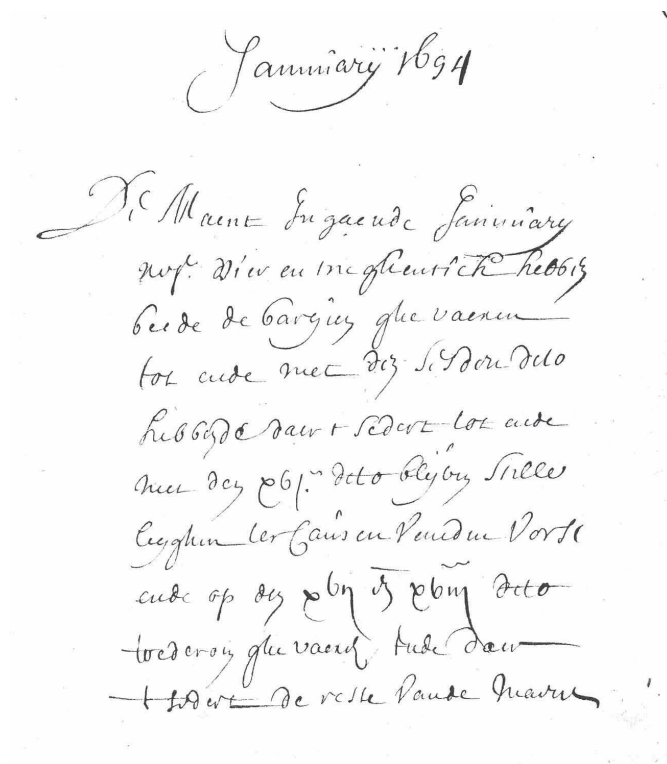 Januarij 1694
Die Maent Ingaende January
xvjc. vier en tneghentich hebben
beede de bargien ghevaeren
tot ende met den sesden dito
hebbende daer t sedert tot ende
met den xvj.en dito blijven stille
legghen ter Causen vande vorst
ende op den xvij en xviij dito
wederom ghevaeren ende daer
t sedert de reste vande Maent